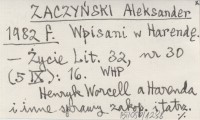 ZACZYŃSKI Aleksander
1982 f. Wpisani w Harendę.
– Życie Lit. 32, nr 30
(5 IX): 16. WHP
Henryk Worcell a Harenda
i inne sprawy zakop. i tatrz.